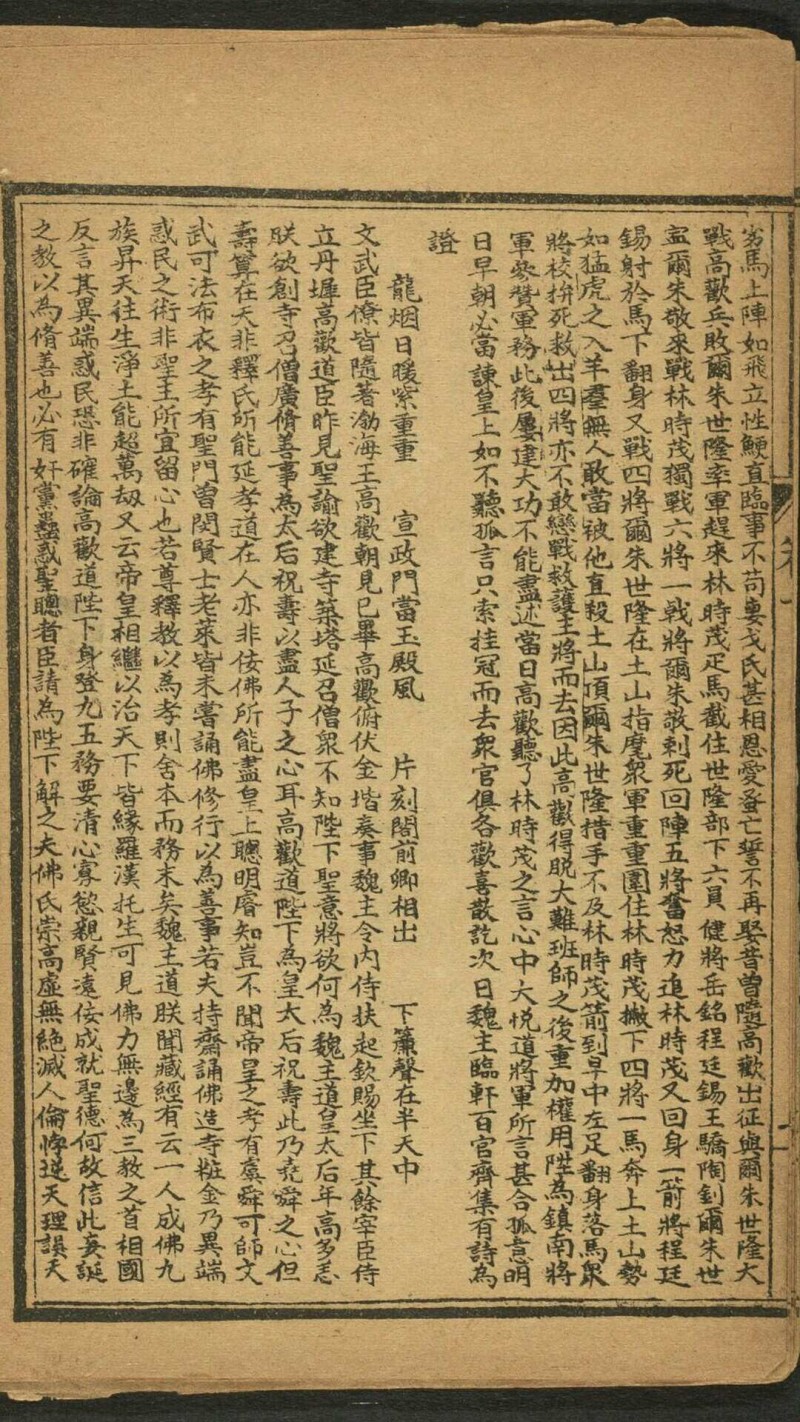 馬上陣如飛立性鯁直臨事不苟妻戈氏甚相恩愛蚤亡誓不再娶昔曾隨高歡出征與爾朱世隆大
戰高歡兵敗爾朱世隆率軍趕來林時茂疋馬截住世隆部下六員健將岳銘程廷錫王驕陶釗爾朱世
爾朱敬來戰林時茂獨戰六將一戰將爾朱敬刺死回陣五將奮怒力追林時茂又回身一箭將程廷
錫射於馬下翻身又戰四將爾朱世隆在土山指麾衆軍重重圍住林時茂撇下四將一馬奔上土山勢
如猛虎之入羊羣無人敢當被他直殺土山頂爾朱世隆措手不及林時茂箭到早中左足翻身落馬衆
將校拚死救出四將亦不敢戀戰救護主將而去因此高歡得脫大難班師之後重加權用陞為鎮南將
軍參贊軍務此後屢建大功不能盡述當日高歡聽了林時茂之言心中大悅道將軍所言甚合孤意明
日早朝必當諫皇上如不聽孤言只索挂冠而去衆官俱各歡喜散訖次日魏主臨軒百官齊集有詩為
證
龍烟日暖紫重重　宣政門當玉殿風　片刻閤前卿相出　下簾聲在半天中
文武臣僚皆隨著渤海王高歡朝見已畢高歡俯伏金堦奏事魏主令內侍扶起欽賜坐下其餘宰臣侍
立丹墀高歡道臣昨見聖諭欲建寺築塔延召僧衆不知陛下聖意將欲何為魏主道皇太后年高多恙
朕欲創寺召僧廣脩善事為太后祝壽以盡人子之心耳高歡道陛下為皇太后祝壽此乃堯舜之心但
壽算在天非釋氏所能延孝道在人亦非佞佛所能盡皇上聰明睿知豈不聞帝皇之孝有虞舜可師文
武可法布衣之孝有聖門曾閔賢士老萊皆未嘗誦佛修行以為善事若夫持齋誦佛造寺粧金乃異端
惑民之術非聖王所宜留心也若尊釋教以為孝則舍本而務末矣魏主道朕聞藏經有云一人成佛九
族昇天往生淨土能超萬劫又云帝皇相繼以治天下皆緣羅漢托生可見佛力無邊為三教之首相國
反言其異端惑民恐非確論高歡道陛下身登九五務要清心寡慾親賢遠佞成就聖德何故信此妄誕
之教以為脩善也必有奸黨蠱惑聖聰者臣請為陛下解之夫佛氏崇高虛無絶滅人倫悖逆天理誤天